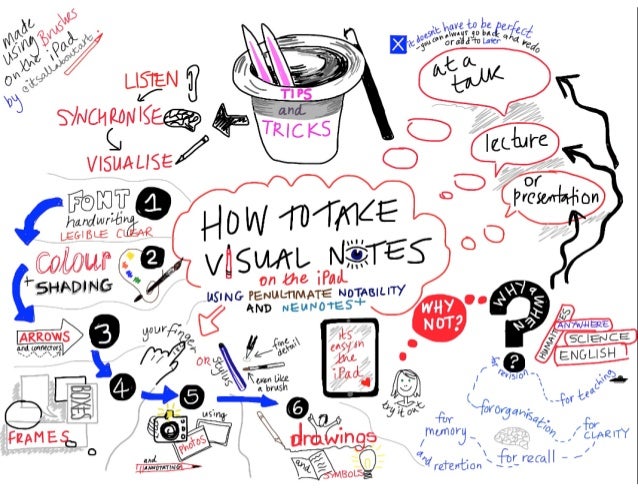 made
using Brushes
on the iPad
by @itsallaboutart
LISTEN
SYNCHRONISE
VISUALISE
TIPS
and
TRICKS
it doesn't have to be perfect
you can always go back and redo
or add to later
at a
talk
lecture
or
presentation
HOW TO TAKE
VISUAL NOTES
on the iPad
USING PENULTIMATE NOTABILITY
AND NEUNOTES+
FONT 1
handwriting
LEGIBLE CLEAR
colour 2
+ SHADING
ARROWS 3
and connectors
4
BOXES
FRAMES
5
using
PHOTOS
and
ANNOTATING
your finger
OR STYLUS
fine
detail
even like
a brush
6
drawings
and
SYMBOLS
it's
easy on
the
iPad
WHY
NOT?
try it out
WHY & WHEN
?
HUMANITIES
ANYWHERE
SCIENCE
ENGLISH
for
revision
for teaching
for organisation
for
memory
and retention
for recall
for
CLARITY